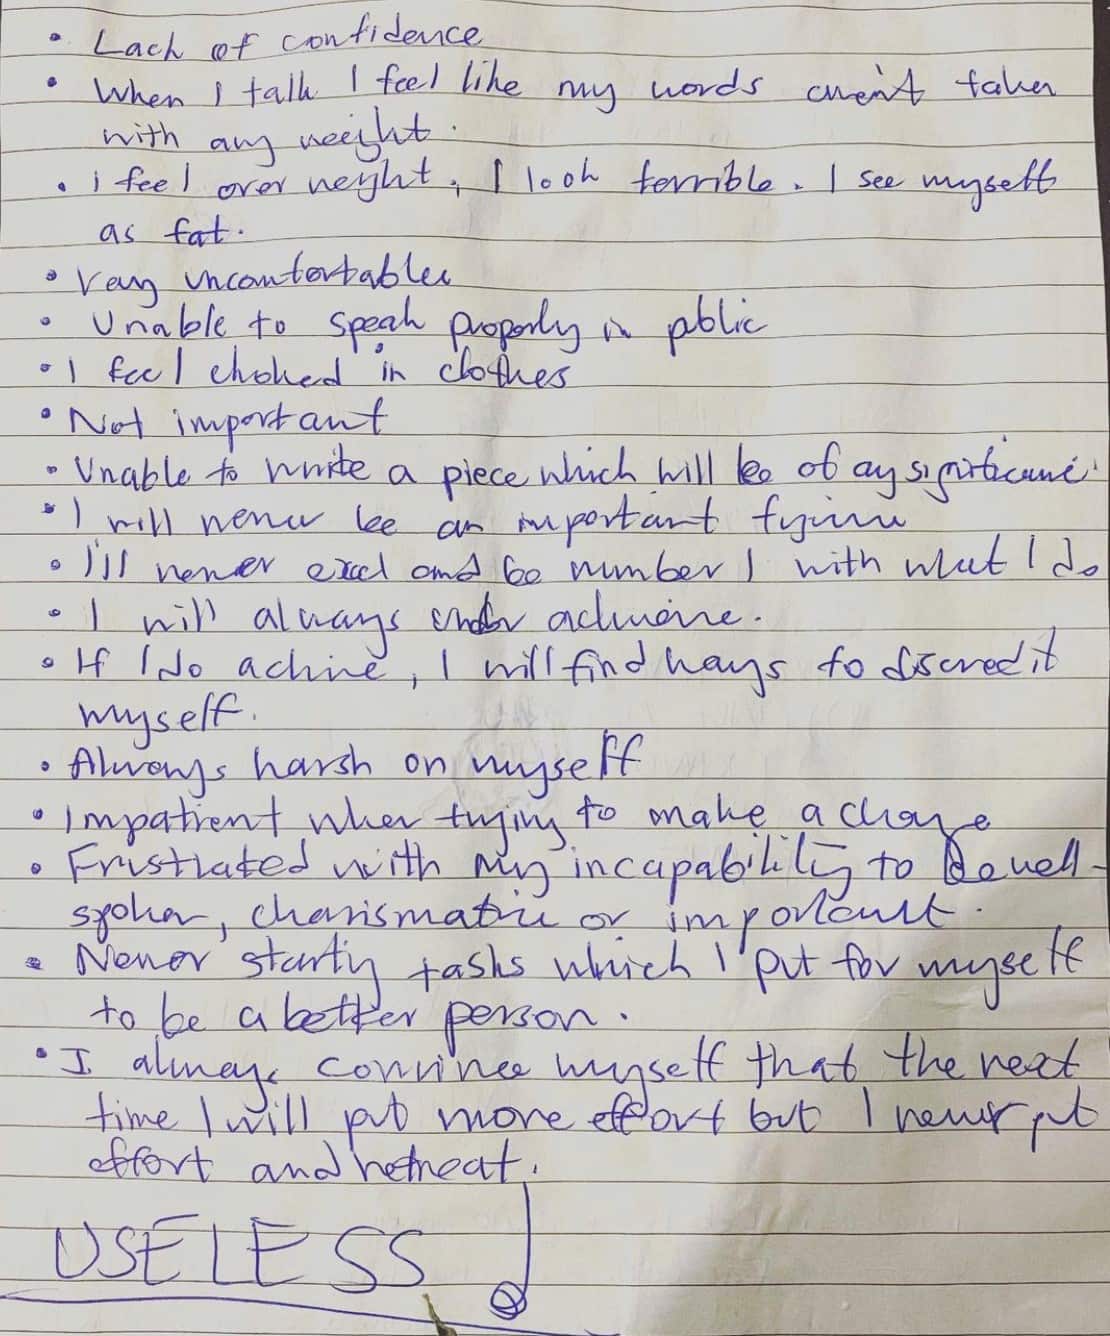 • Lack of confidence
• When I talk I feel like my words aren't taken
with any weight.
• i feel over weight, I look terrible. I see myself
as fat.
• Very uncomfortable
• Unable to speak properly in public
• I feel choked in clothes
• Not important
• Unable to write a piece which will be of any significance
• I will never be an important figure
• I'll never excel and be number 1 with what I do
• I will always under achieve.
• If I do achieve, I will find ways to discredit
myself.
• Always harsh on myself
• Impatient when trying to make a change
• Frustrated with my incapability to be well-
spoken, charismatic or important.
• Never starting tasks which I put for myself
to be a better person.
• I always convince myself that the next
time I will put more effort but I never put
effort and retreat.
USELESS!